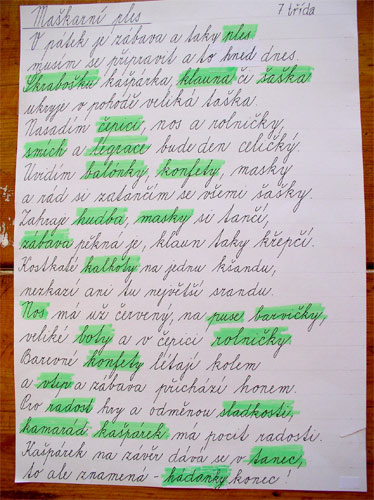 Maškarní ples
7 třída
V pátek je zábava a taky ples
musím se připravit a to hned dnes.
Škrabošku kašpárka, klauna či šaška
ukryje v pohodě veliká taška.
Nasadím čepici, nos a rolničky,
smích a legrace bude den celičký.
Uvidím balónky, konfety, masky
a rád si zatančím se všemi šašky.
Zahraje hudba, masky si tančí,
zábava pěkná je, klaun taky křepčí.
Kostkaté kalhoty na jednu kšandu,
nezkazí ani tu největší srandu.
Nos má už červený, na puse barvičky,
veliké boty a v čepici rolničky.
Barevné konfety létají kolem
a vtip a zábava přichází honem.
Pro radost hry a odměnou sladkosti,
kamarád kašpárek má pocit radosti.
Kašpárek na závěr dává se v tanec,
to ale znamená - hádanky konec!